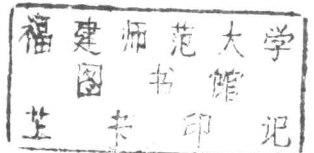 福建师范大学
图书馆
芷书印记